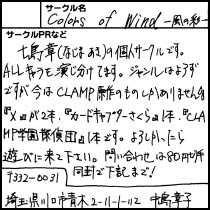 サークル名
Colors of Wind―風の彩―
サークルPRなど
七島章(なじま あき)の個人サークルです。
ALLキャラを演じ分けてます。ジャンルはよろず
ですが今はCLAMP原作のものしかありませんo
『X』が2本、『カードキャプターさくら』1本、『CLA
MP学園探偵団』1本です。よろしかったら
遊びに来て下さい。問い合わせは80円切手
同封で下記まで!
〒332-0031
埼玉県川口市青木2-11-1-112 七島章子